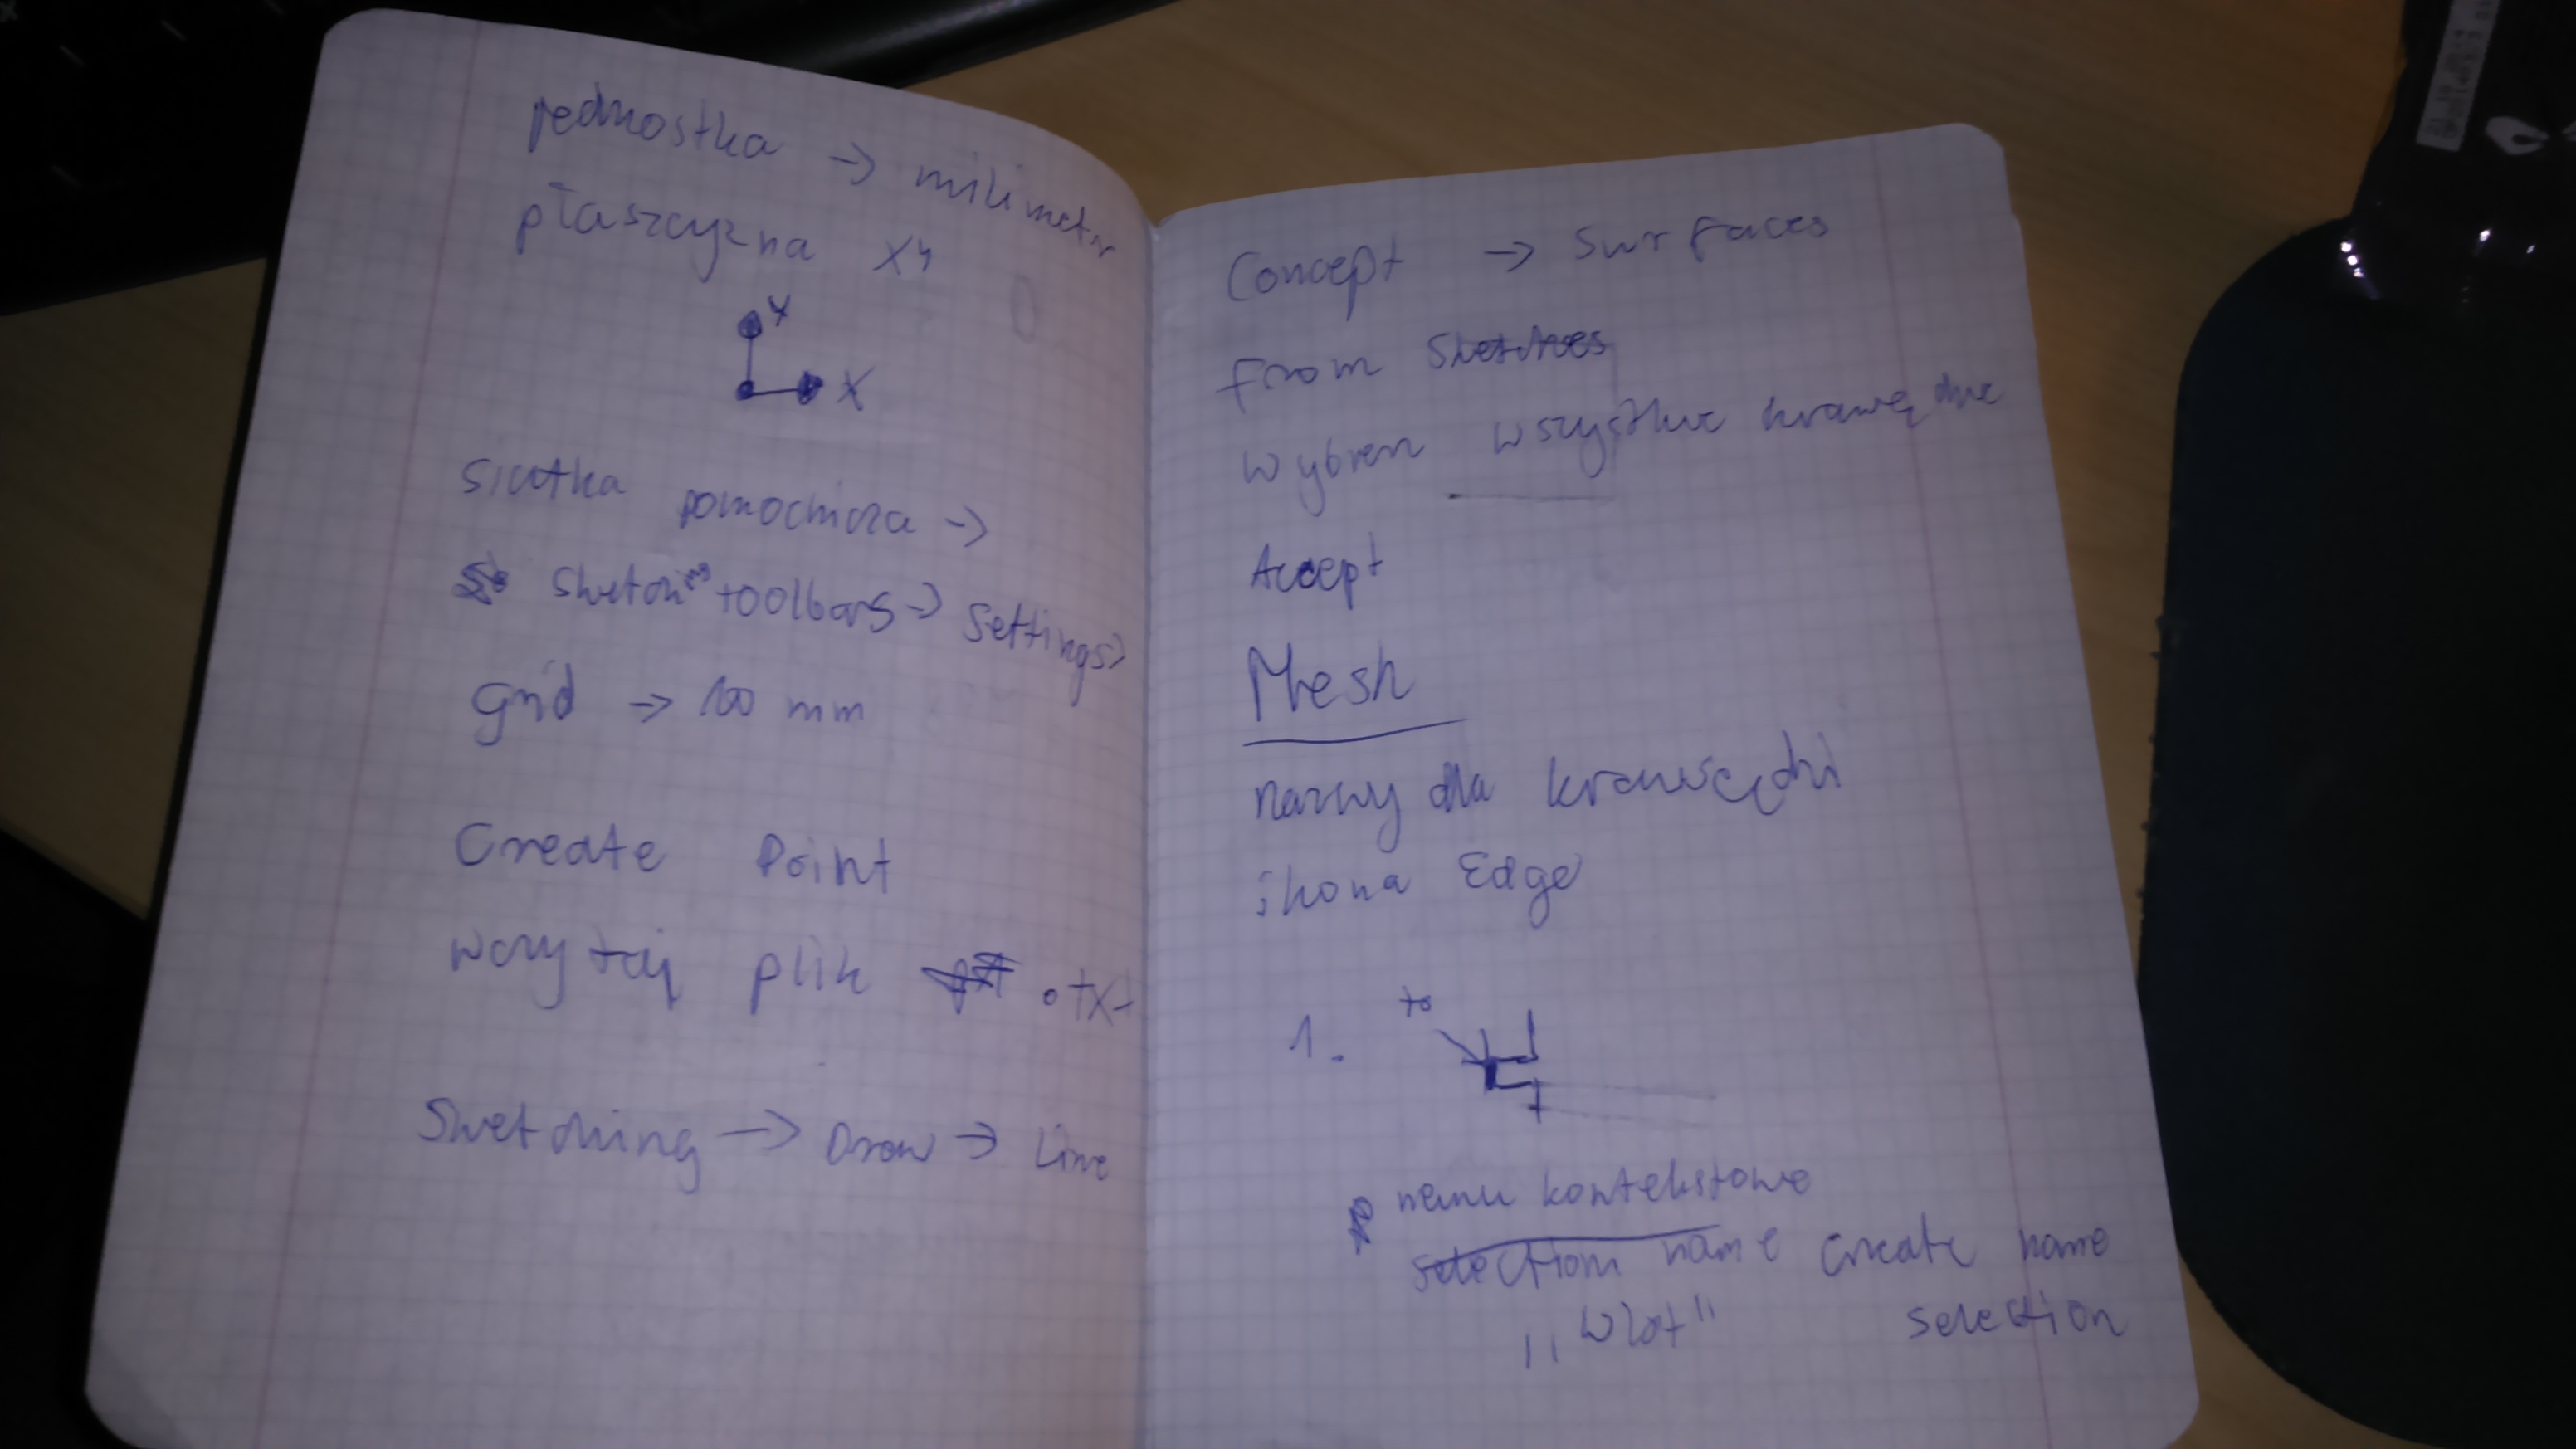 jednostka -> milimetr
płaszczyzna XY
Y
X
siatka pomocnicza ->
Sketching toolbars -> Settings >
Grid -> 100 mm
Create Point
wczytaj plik .txt
Sketching -> Draw -> Line
Concept -> Surfaces
from Sketches
wybierz wszystkie krawędzie
Accept
Mesh
nazwy dla krawędzi
ikona Edge
1. to
menu kontekstowe
selection name create name
„Wlot" selection